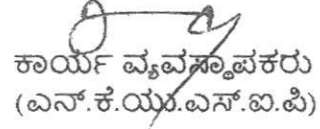 ಕಾರ್ಯ ವ್ಯವಸ್ಥಾಪಕರು
(ಎನ್.ಕೆ.ಯು.ಎಸ್.ಐ.ಪಿ)